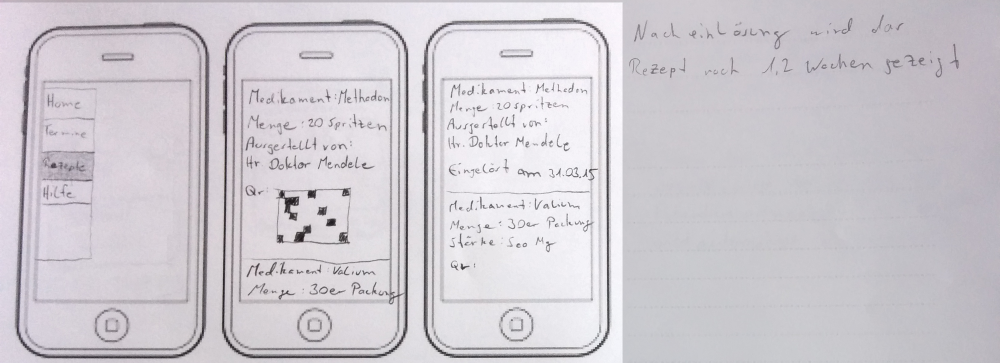 Home
Termine
Rezepte
Hilfe
Medikament: Methadon
Menge: 20 Spritzen
Ausgestellt von:
Hr Doktor Mendele
Qr:
Medikament: Valium
Menge: 30er Packung
Medikament: Methadon
Menge: 20 Spritzen
Ausgestellt von:
Hr. Doktor Mendele
Eingelöst am 31.03.15
Medikament: Valium
Menge: 30er Packung
Stärke: 500 Mg
Qr:
Nach einlösung wird das
Rezept noch 1,2 Wochen gezeigt